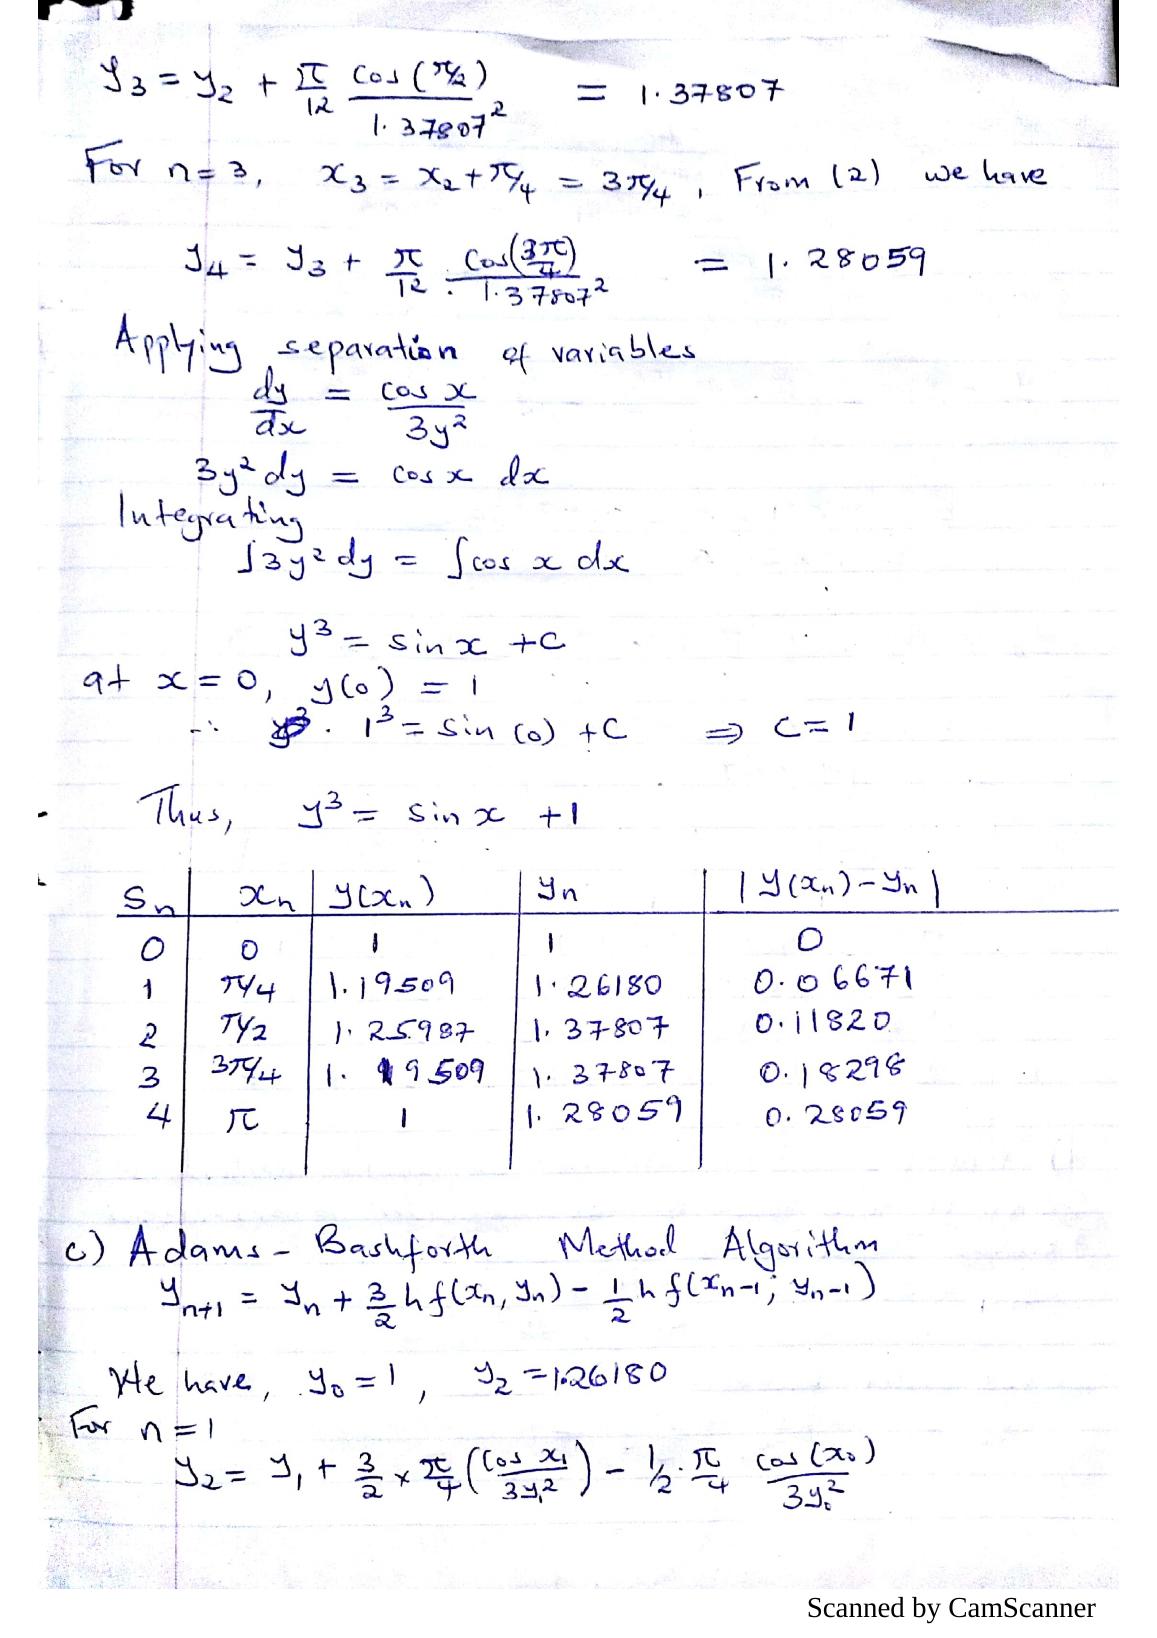 y₃ = y₂ + π/12 cos(π/2)/1.37807² = 1.37807
For n=3, x₃ = x₂+π/4 = 3π/4, From (2) we have
y₄ = y₃ + π/12 · cos(3π/4)/1.37807² = 1.28059
Applying separation of variables
dy/dx = cos x/3y²
3y² dy = cos x dx
Integrating
∫3y² dy = ∫cos x dx
y³ = sin x + c
at x = 0, y(0) = 1
∴ 1³ = sin (0) + C ⇒ C = 1
Thus, y³ = sin x + 1
Sn xn y(xn) yn |y(xn) – yn|
0 0 1 1 0
1 π/4 1.19509 1.26180 0.06671
2 π/2 1.25987 1.37807 0.11820
3 3π/4 1.19509 1.37807 0.18298
4 π 1 1.28059 0.28059
c) Adams – Bashforth Method Algorithm
yₙ₊₁ = yₙ + 3/2 h f(xₙ, yₙ) – 1/2 h f(xₙ₋₁; yₙ₋₁)
We have, y₀ = 1, y₂ = 1.26180
For n = 1
y₂ = y₁ + 3/2 × π/4 (cos x₁/3y₁²) – 1/2 · π/4 cos(x₀)/3y₀²
Scanned by CamScanner